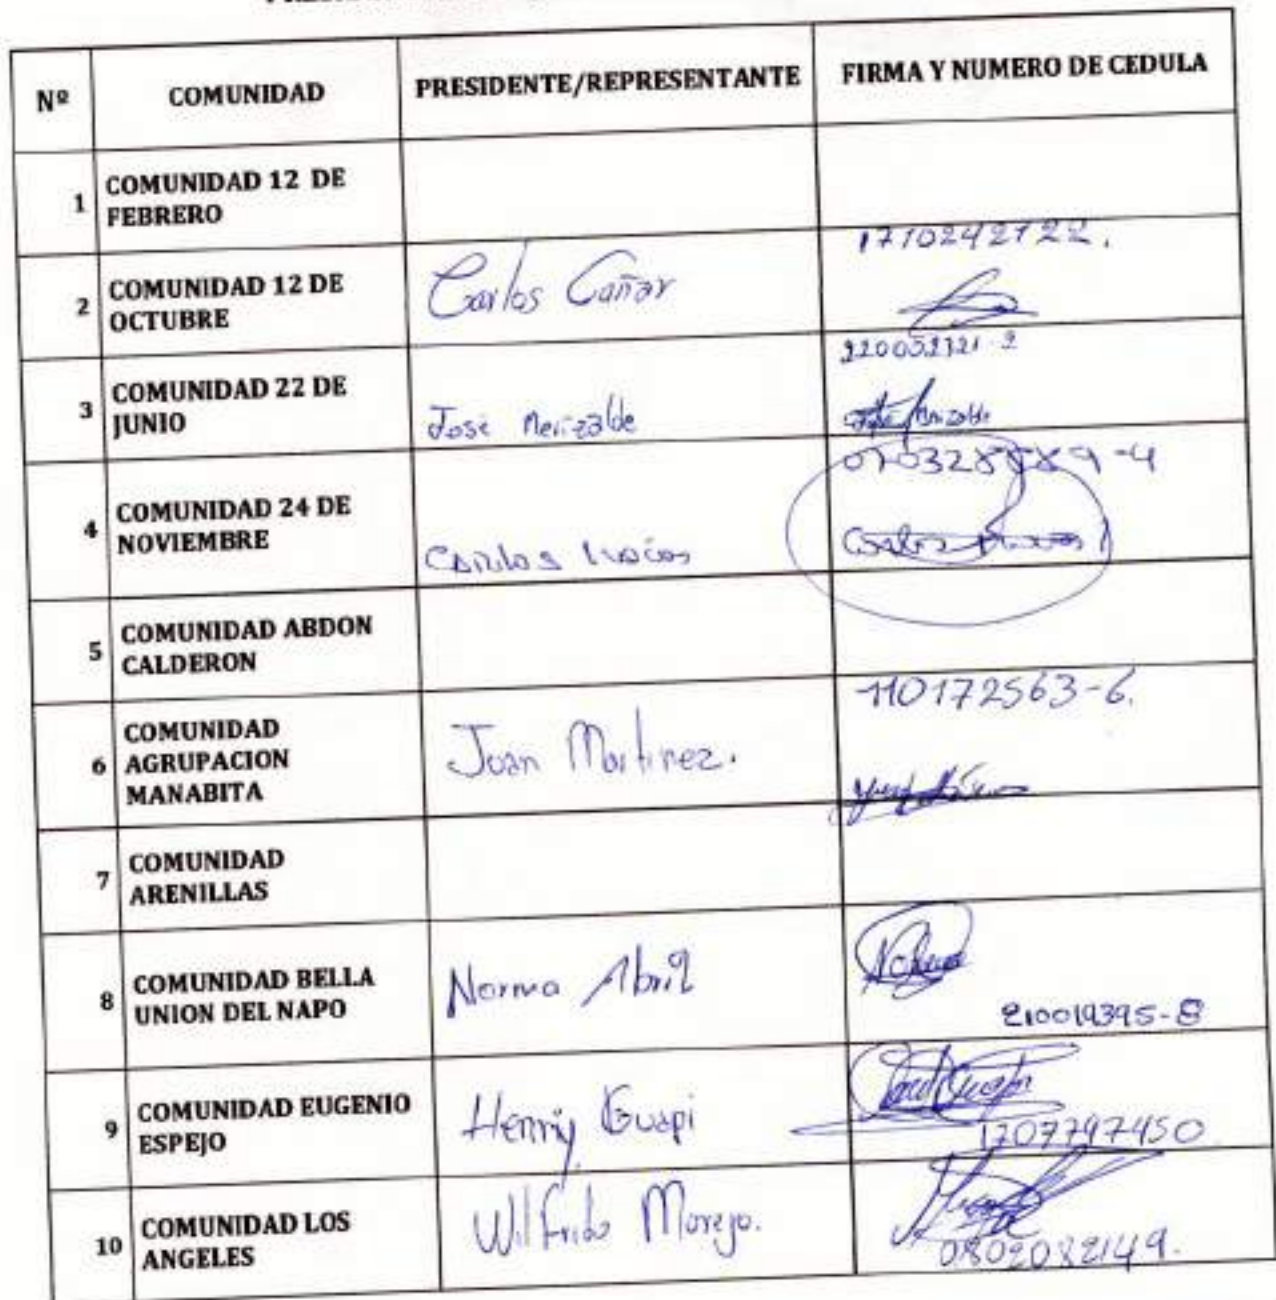 Nº
COMUNIDAD
PRESIDENTE/REPRESENTANTE
FIRMA Y NUMERO DE CEDULA
1
COMUNIDAD 12 DE
FEBRERO
2
COMUNIDAD 12 DE
OCTUBRE
Carlos Cañar
1710242722.
3
COMUNIDAD 22 DE
JUNIO
José Merizalde
4
COMUNIDAD 24 DE
NOVIEMBRE
Carlos
5
COMUNIDAD ABDON
CALDERON
6
COMUNIDAD
AGRUPACION
MANABITA
Juan Martinez.
110172563-6.
7
COMUNIDAD
ARENILLAS
8
COMUNIDAD BELLA
UNION DEL NAPO
Norma Abril
210019395-8
9
COMUNIDAD EUGENIO
ESPEJO
Henry Guapi
1707797450
10
COMUNIDAD LOS
ANGELES
Wilfrido Morejo.
0802082149.